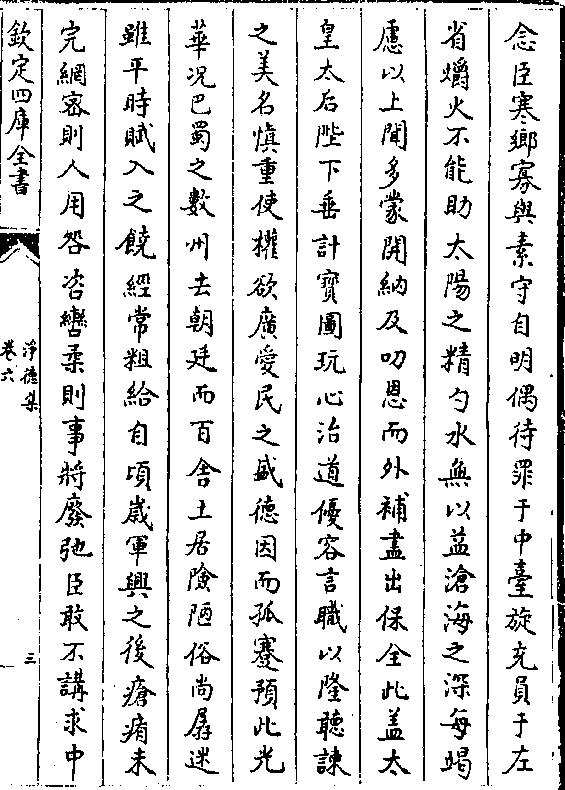 念臣寒鄉寡與素守自明偶待罪于中臺旋充員于左
省爝火不能助太陽之精勺水無以益滄海之深每竭
慮以上聞多蒙開納及叨恩而外補盡出保全此盖太
皇太后陛下垂計寶圖玩心治道優容言職以隆聽諫
之美名慎重使權欲廣愛民之盛德因而孤蹇預此光
華况巴蜀之數州去朝廷而百舍土居險陋俗尚孱迷
雖平時賦入之饒經常粗給自頃歲軍興之後瘡痏未
完網宻則人用咎咨轡柔則事將廢弛臣敢不講求中
欽定四庫全書
淨德集
卷六
三